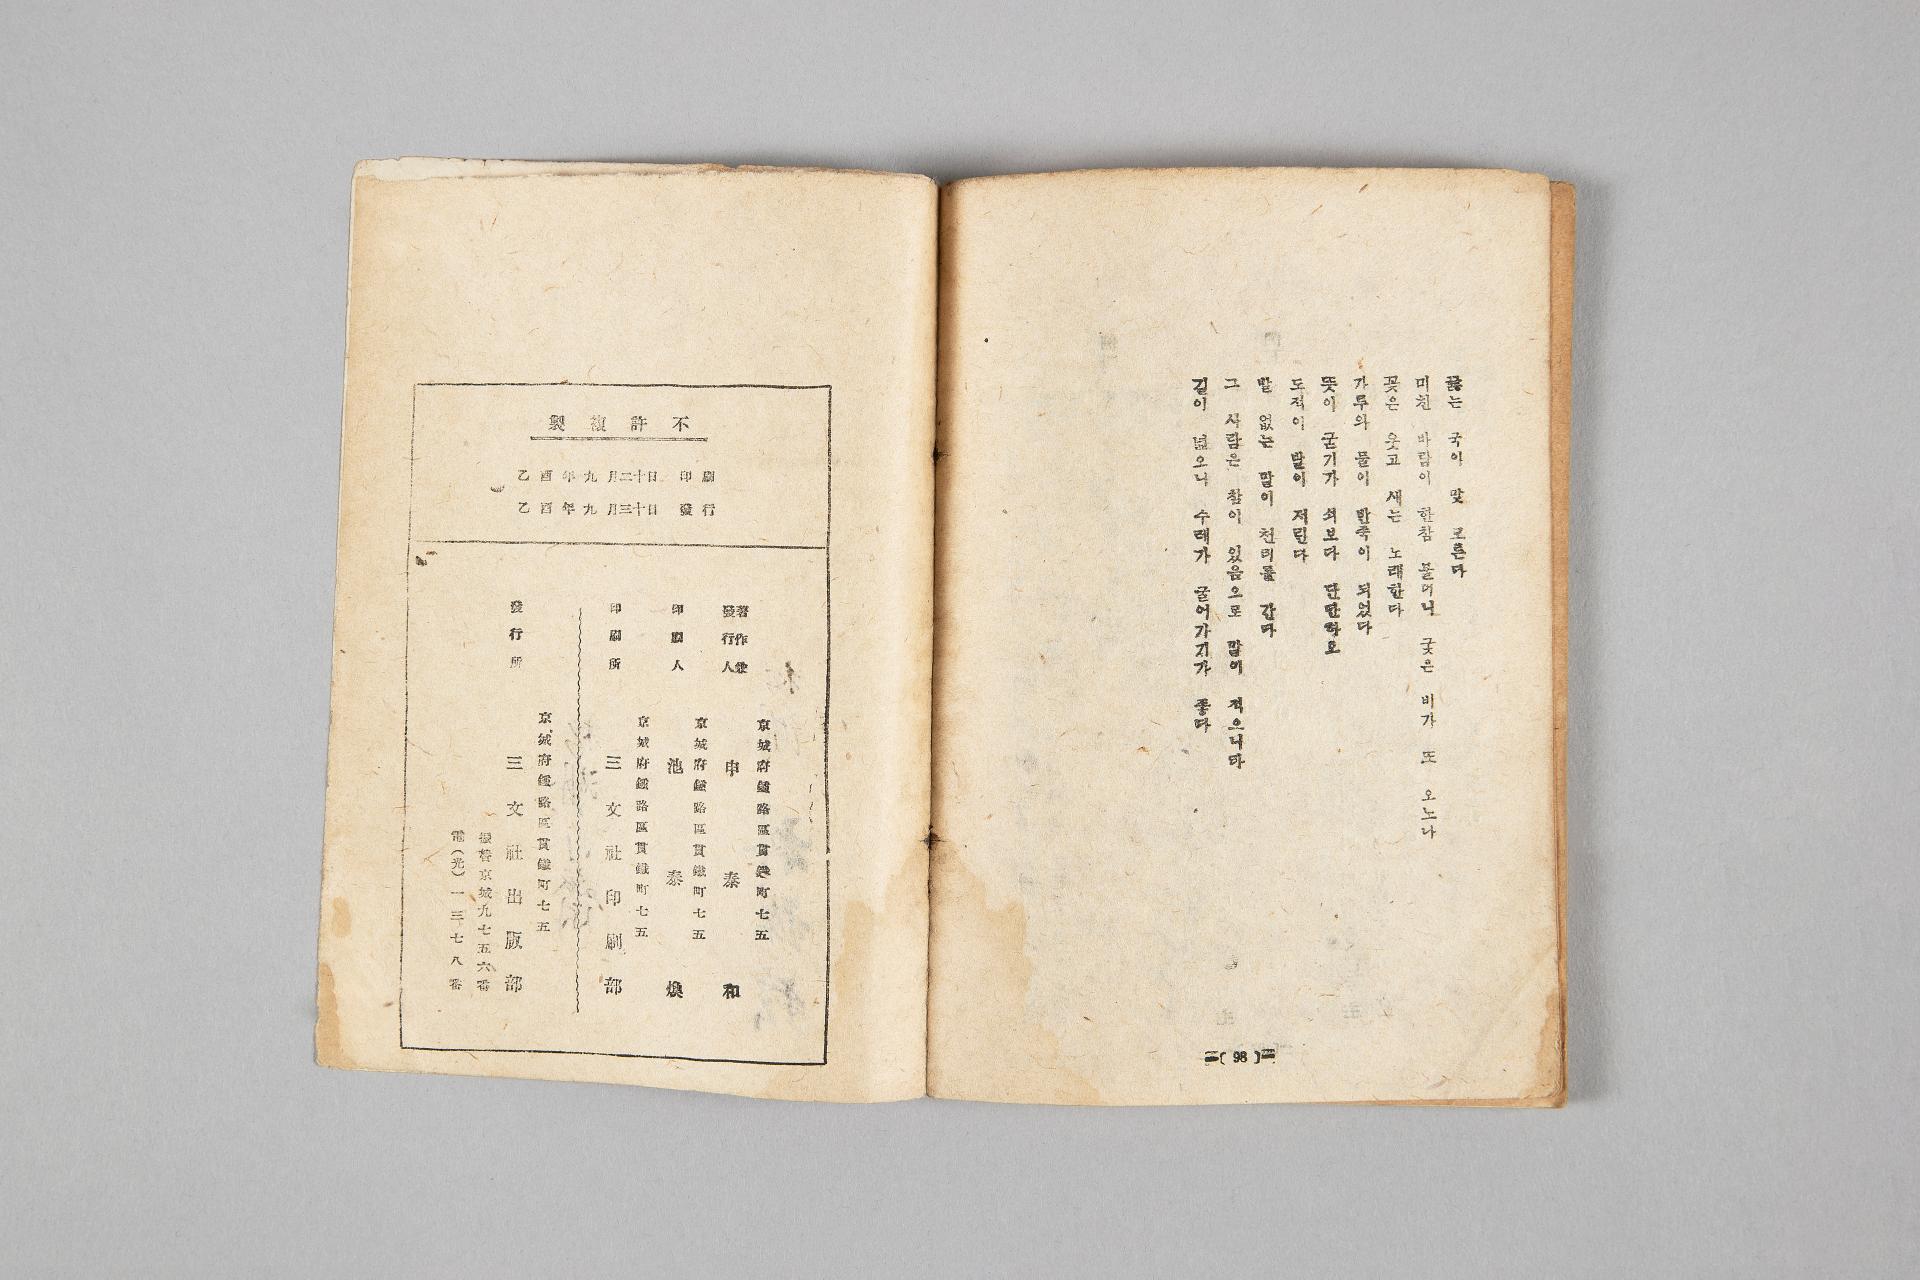 끓는 국이 맛 모른다
미친 바람이 한참 불더니 궂은 비가 또 오노나
꽃은 웃고 새는 노래한다
가루와 물이 반죽이 되었다
뜻이 굳기가 쇠보다 단단하오
도적이 발이 저린다
발 없는 말이 천리를 간다
그 사람은 참이 있음으로 말이 적으니라
길이 넓으니 수레가 굴어가기가 좋다
(98)
不許複製
乙酉年九月二十日 印刷
乙酉年九月三十日 發行
京城府鍾路區貫鐵町七五
著作兼發行人 申泰和
京城府鍾路區貫鐵町七五
印刷人 池泰煥
京城府鍾路區貫鐵町七五
印刷所 三文社印刷部
京城府鍾路區貫鐵町七五
發行所 三文社出版部
振替京城九七五六番
電(光)一三七八番